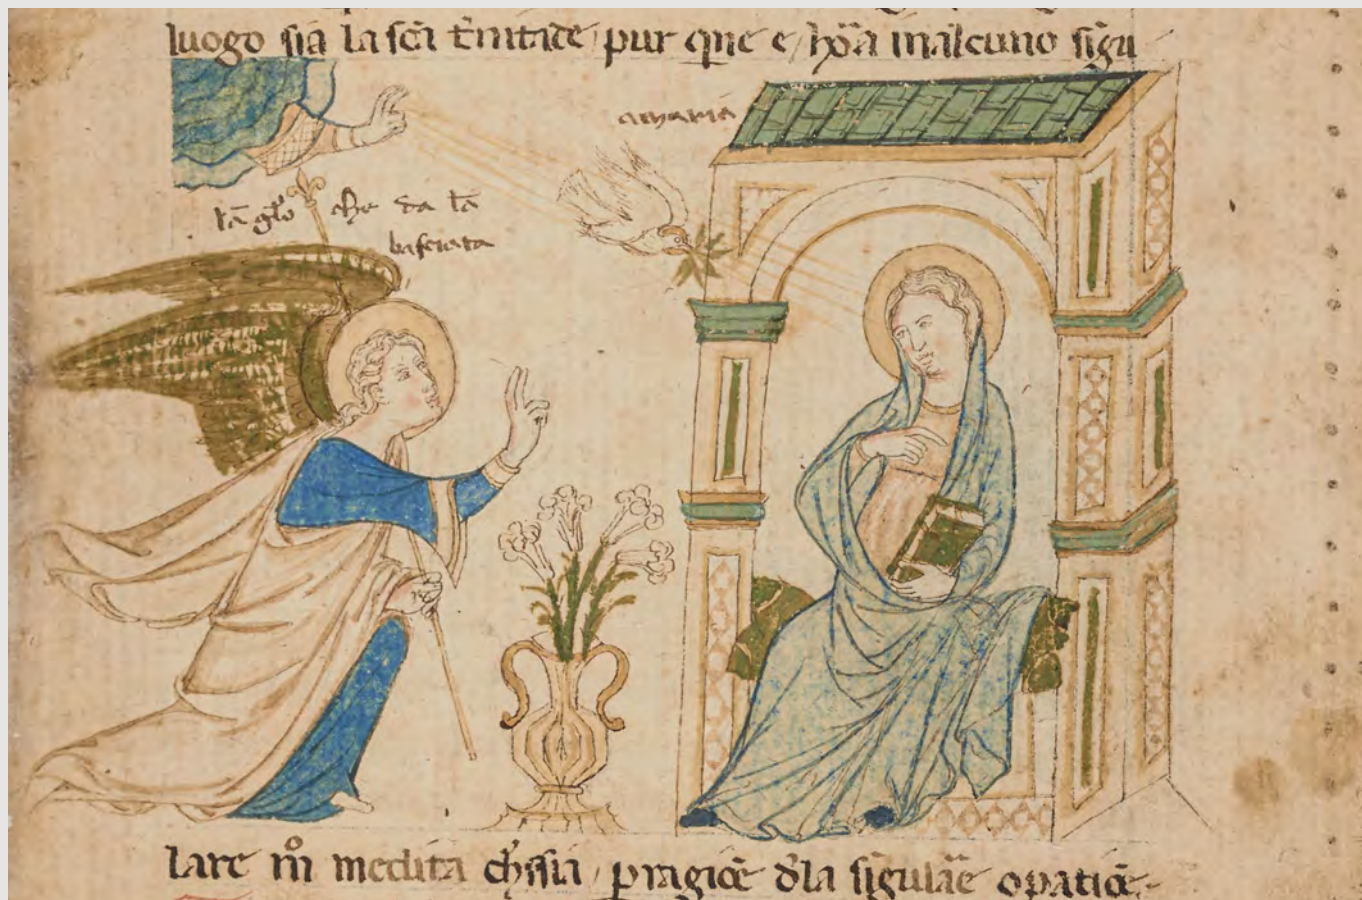 luogo sia la sc̄a t̄nitade / pur que e / ho͞a in alcuno sig̃u
a maria
lā g̃lo che da lā
basciata
lare m̊ medita ch̃ssia / p ragiōe d̃la sig̃ulãe opatiōe.